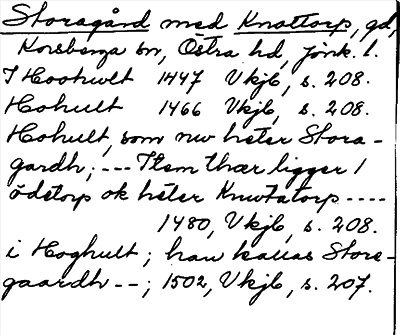 Storagård med Knattorp, gd,
Korsberga sn, Östra hd, jönk. l.
I Hoohwlt 1447 Vkjb, s. 208.
Hohult 1466 Vkjb, s. 208.
Hohult, som nw heter Stora-
gardh; --- Item thær ligger 1
ödetorp ok heter Knwtatorp ----
1480, Vkjb, s. 208.
i Hoghult; han kallas Store-
gaardh --; 1502, Vkjb, s. 207.